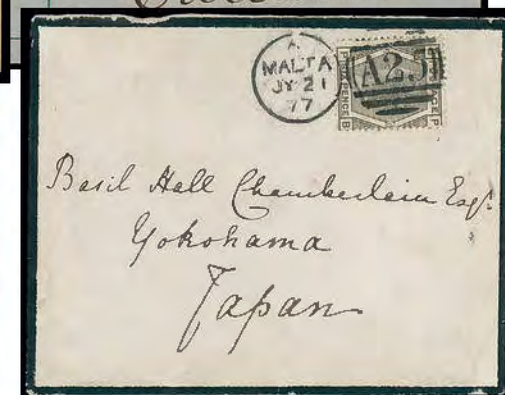 A
MALTA
JY 21
77
A25
Basil Hall Chamberlain Esqr.
Yokohama
Japan